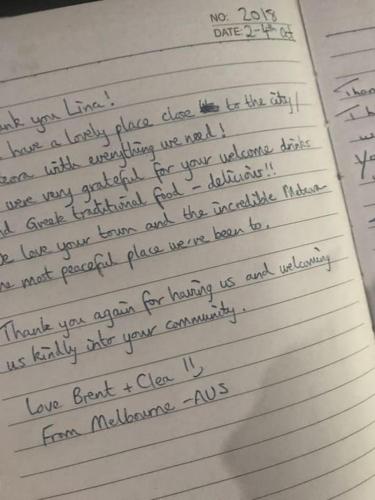 NO: 2018
DATE: 2-4th Oct
ank you Lina!
have a lovely place close to the city/
eora with everything we need!
were very grateful for your welcome drinks
nd Greek traditional food - delicious!!
e love your town and the incredible Meteora
e most peaceful place we've been to.
Thank you again for having us and welcoming
us kindly into your community.
Love Brent + Clea !!
From Melbourne - AUS